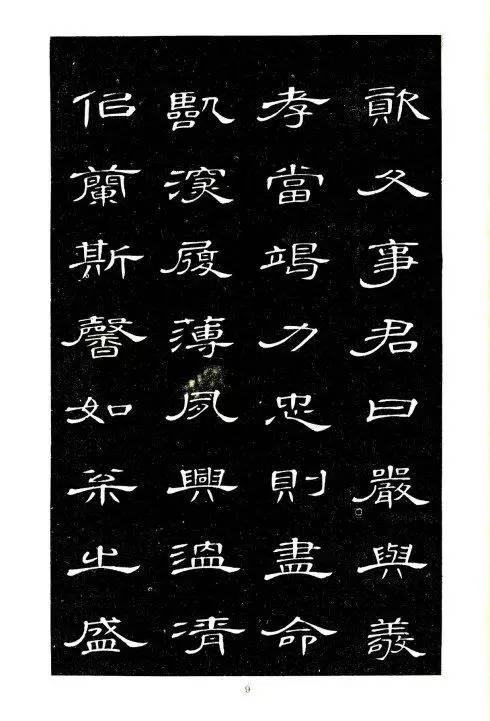 資父事君曰嚴與敬
孝當竭力忠則盡命
臨深履薄夙興溫凊
似蘭斯馨如松之盛
9